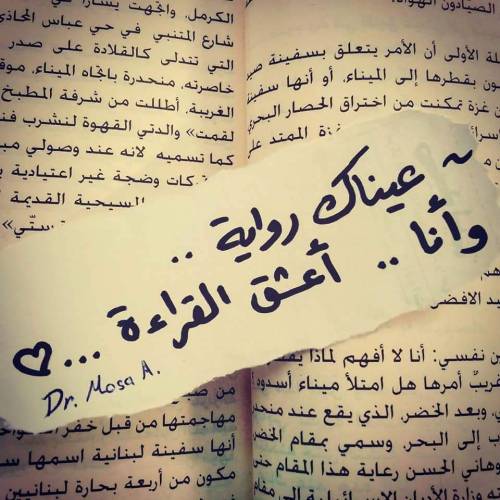 الصيادون الهواة.
الأولى أن الأمر يتعلق بسفينة
بقطرها إلى الميناء، أو أنها
غزة تمكنت من اختراق الحصار البحري
الممتد
الكرمل، واتجهت يسارًا
شارع المتنبي في حي عباس
التي تتدلى كالقلادة على صدر
خاصرته، منحدرة باتجاه الميناء،
الغريبة. أطللت من شرفة المطبخ
لقمت» والدتي القهوة لنشرب
كما تسميه لأنه عند وصولي
وضجة غير اعتيادية
المسيحية القديمة
~ عيناك رواية ..
وأنا .. أعشق القراءة ... ♡
Dr. Mosa A.
نفسي: أنا لا أفهم لماذا
أمرها هل امتلأ ميناء
وبعد الخضر الذي يقع عند
إلى البحر. وسمي بمقام
الحسن رعاية هذا المقام
من
مهاجمتها من قبل خفر
أنها سفينة لبنانية اسمها
مكون من أربعة بحارة لبنانيين